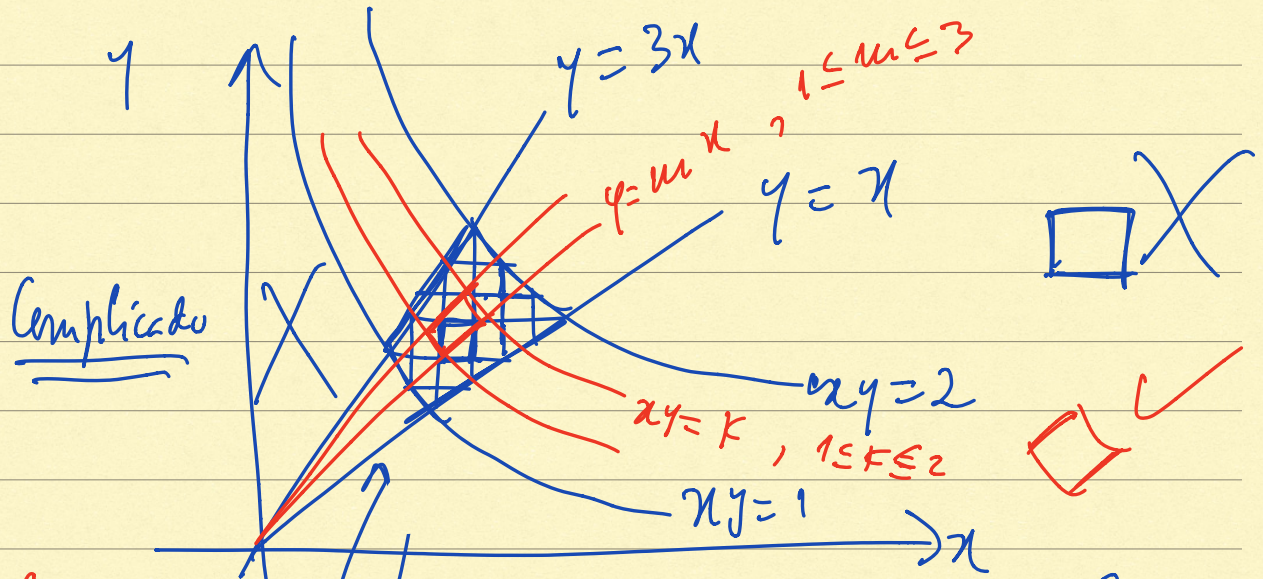 y
y = 3x
1 ≤ m ≤ 3
y = mx ,
y = x
Complicado
xy = 2
xy = k , 1 ≤ k ≤ 2
xy = 1
x